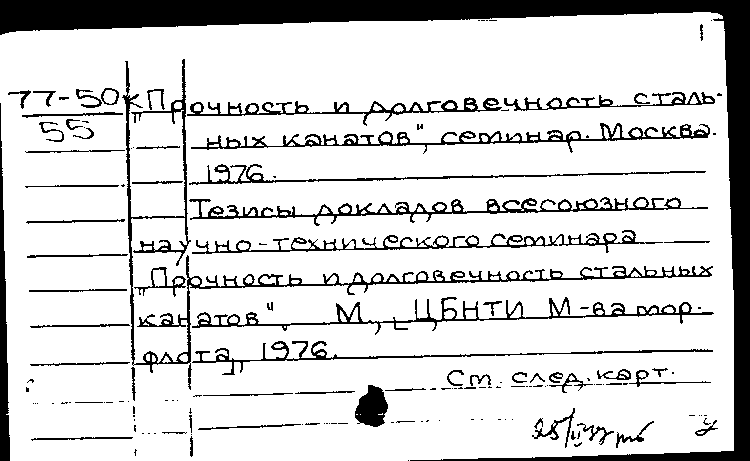 1
77-50к „Прочность и долговечность сталь-
55 ных канатов", семинар. Москва.
1976.
Тезисы докладов всесоюзного
научно-технического семинара
„Прочность и долговечность стальных
канатов". М., [ЦБНТИ М-ва мор.
флота], 1976.
См. след. карт.